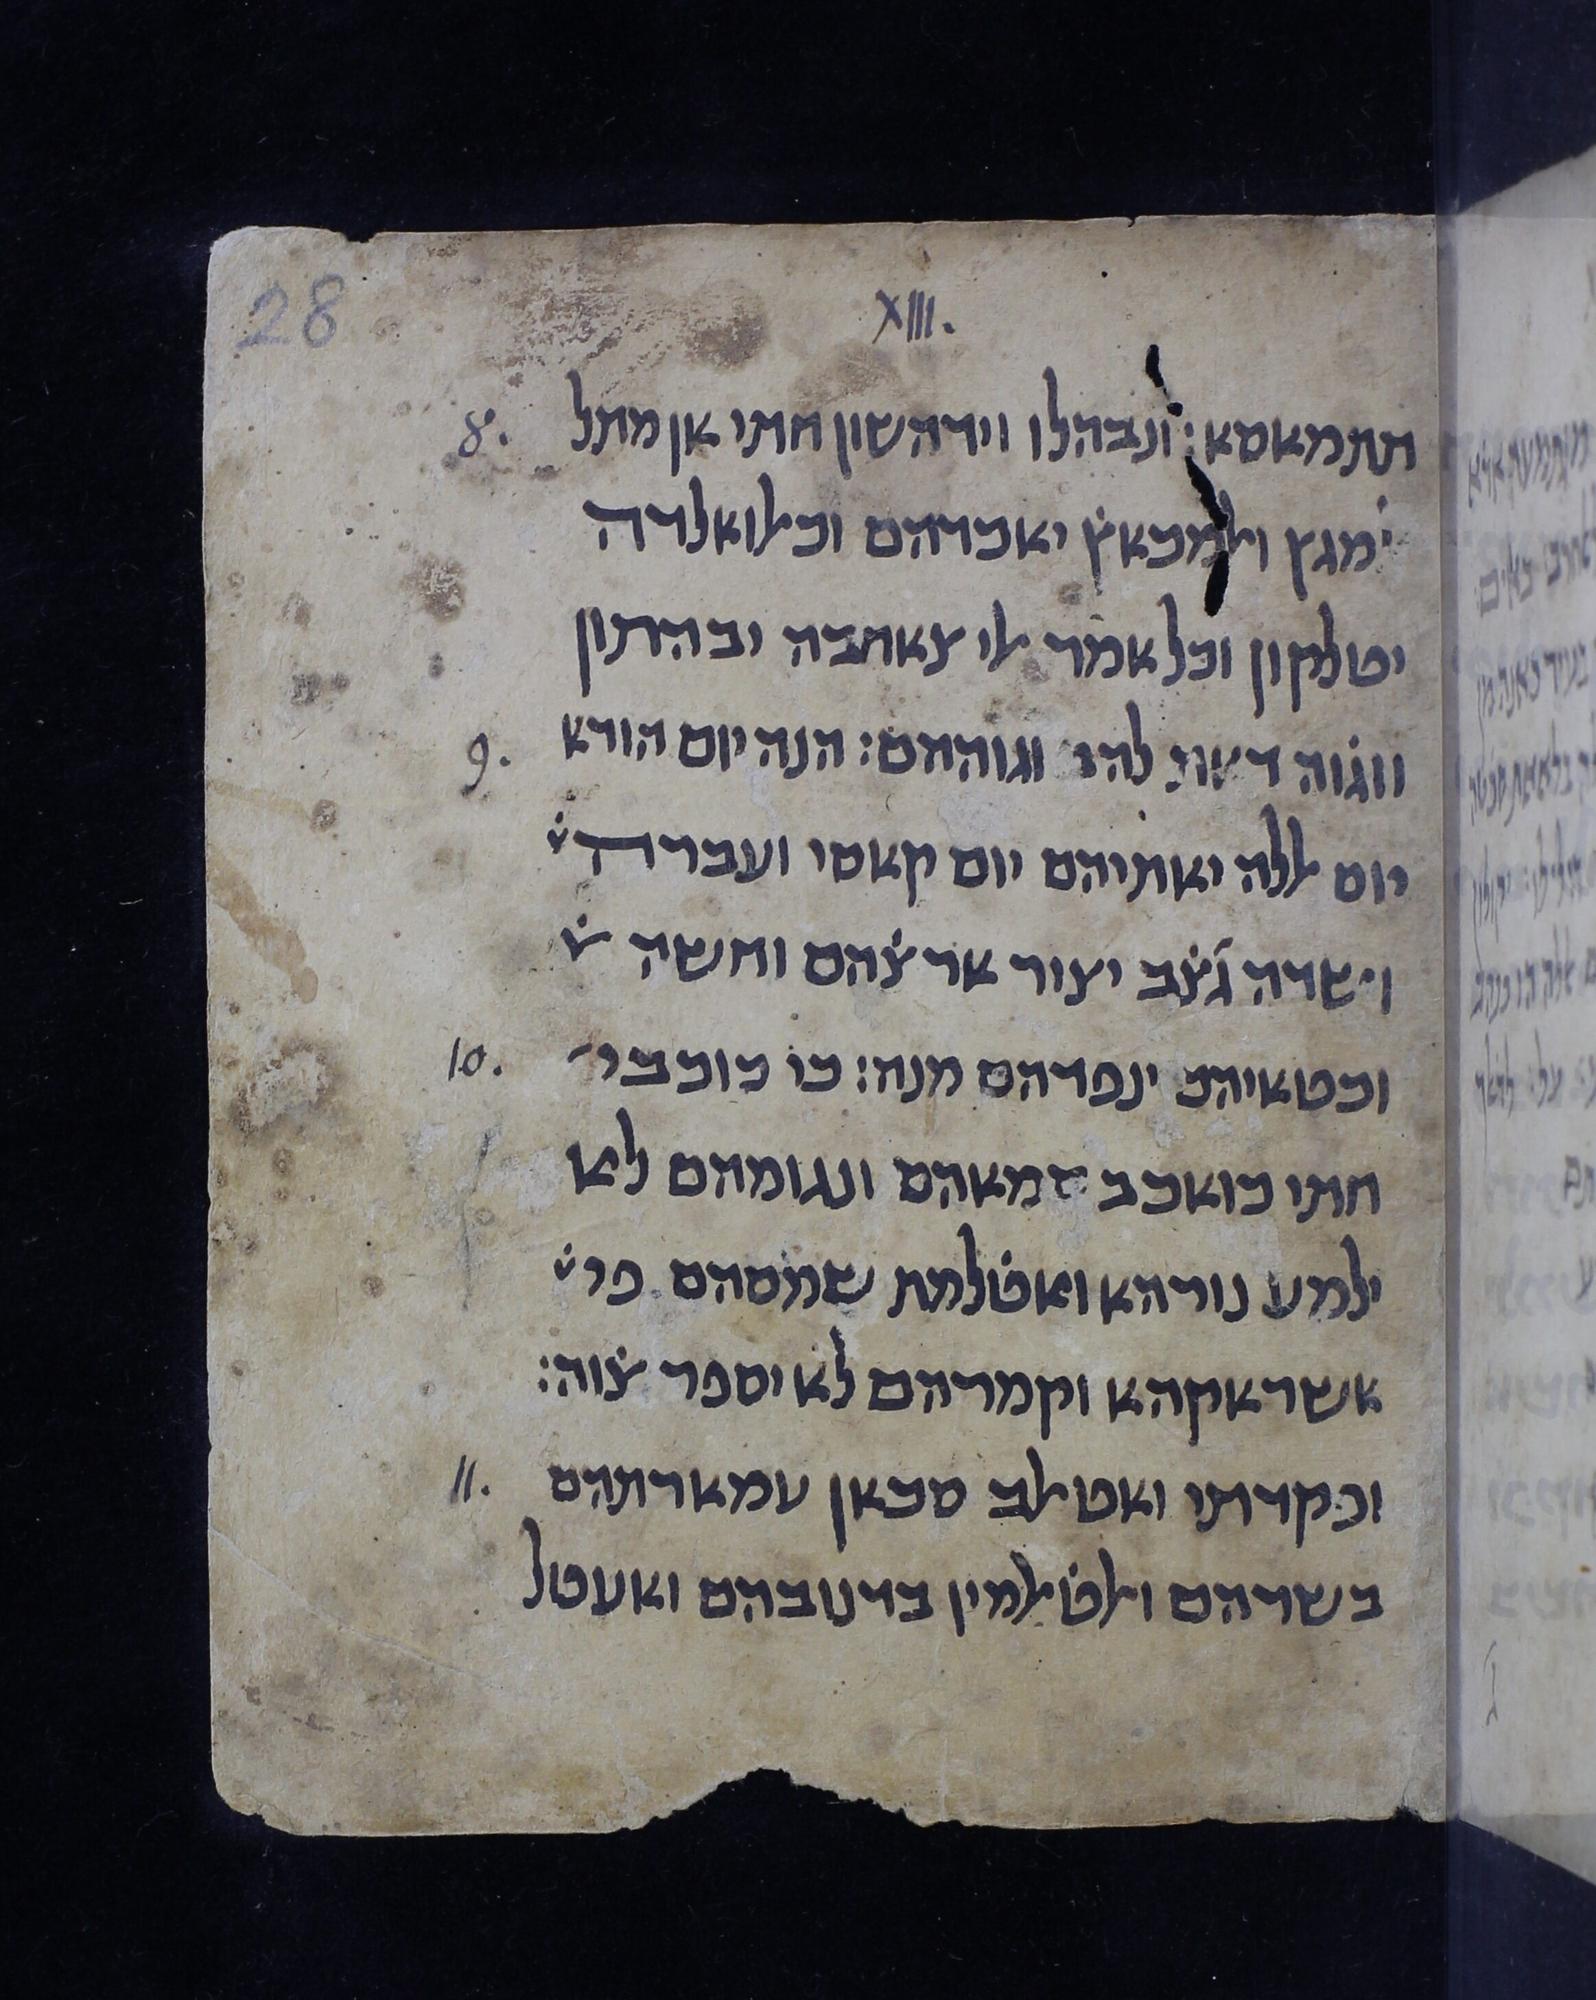 28
XIII.
תתמאסא: ונבהלו וידהשון חתי אן מתל 8.
ימגץ ולמכאץ̇ יאכדהם וכלואלדה
יטלקון וכל אמר אלי צאחבה יבהתון
ווגוה דשות להב וגוההם: הנה יום הודא 9.
יום אללה יאתיהם יום קאסי ועברה
ושדה ג̇צ̇ב יציר ארצ̇הם וחשה
וכטאיהם ינפדהם מנה: כי כוכבי 10.
חתי כואכב סמאהם ונגומהם לא
ילמע נורהא ואט̇למת שמסהם פי
אשראקהא וקמרהם לא יספר צ̇וה:
ופקדתי ואטאלב סכאן עמארתהם 11.
בשרהם ואלט̇אלמין בדנובהם ואעטל